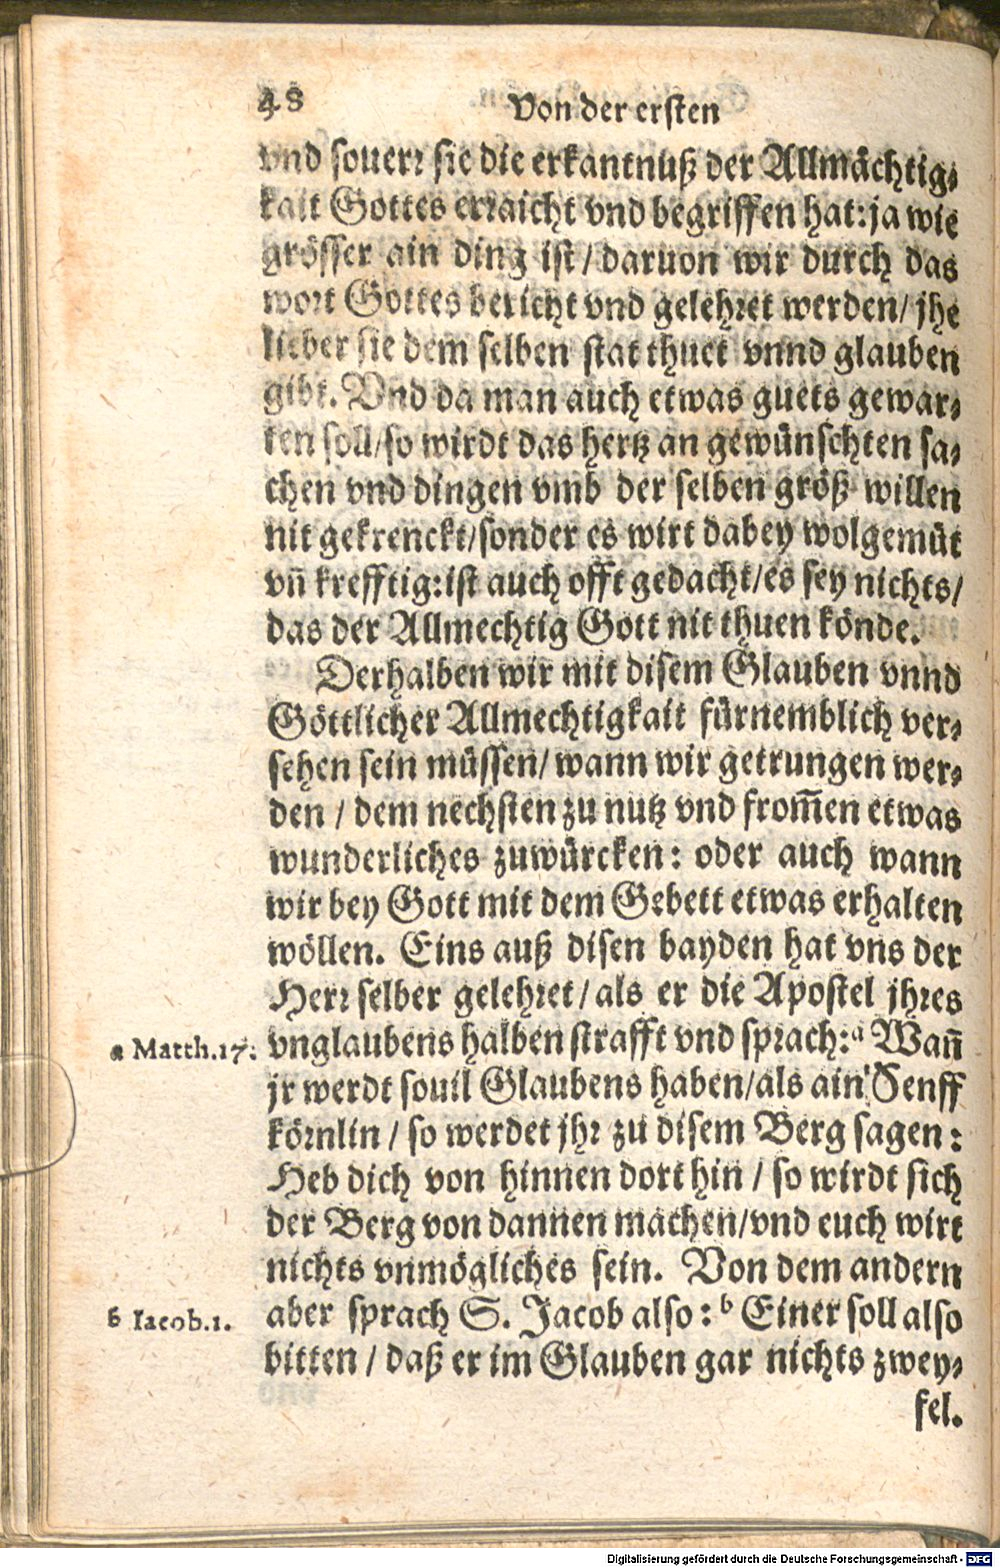 48 Von der ersten
vnd souerr sie die erkantnuß der Allmächtig⸗
kait Gottes erraicht vnd begriffen hat: ja wie
grösser ain ding ist / daruon wir durch das
wort Gottes bericht vnd gelehret werden / jhe
lieber sie dem selben stat thuet vnnd glauben
gibt. Vnd da man auch etwas guets gewar⸗
ten soll / so wirdt das hertz an gewünschten sa⸗
chen vnd dingen vmb der selben größ willen
nit gekrenckt / sonder es wirt dabey wolgemüt
vn̄ krefftig: ist auch offt gedacht / es sey nichts /
das der Allmechtig Gott nit thuen könde.
Derhalben wir mit disem Glauben vnnd
Göttlicher Allmechtigkait fürnemblich ver⸗
sehen sein müssen / wann wir getrungen wer⸗
den / dem nechsten zu nutz vnd from̄en etwas
wunderliches zuwürcken: oder auch wann
wir bey Gott mit dem Gebett etwas erhalten
wöllen. Eins auß disen bayden hat vns der
Herr selber gelehret / als er die Apostel jhres
a Matth.17. vnglaubens halben strafft vnd sprach: a Wan̄
jr werdt souil Glaubens haben / als ain Senff
körnlin / so werdet jhr zu disem Berg sagen:
Heb dich von hinnen dort hin / so wirdt sich
der Berg von dannen machen / vnd euch wirt
nichts vnmögliches sein. Von dem andern
b Iacob.1. aber sprach S. Jacob also: b Einer soll also
bitten / daß er im Glauben gar nichts zwey⸗
fel.
Digitalisierung gefördert durch die Deutsche Forschungsgemeinschaft - DFG